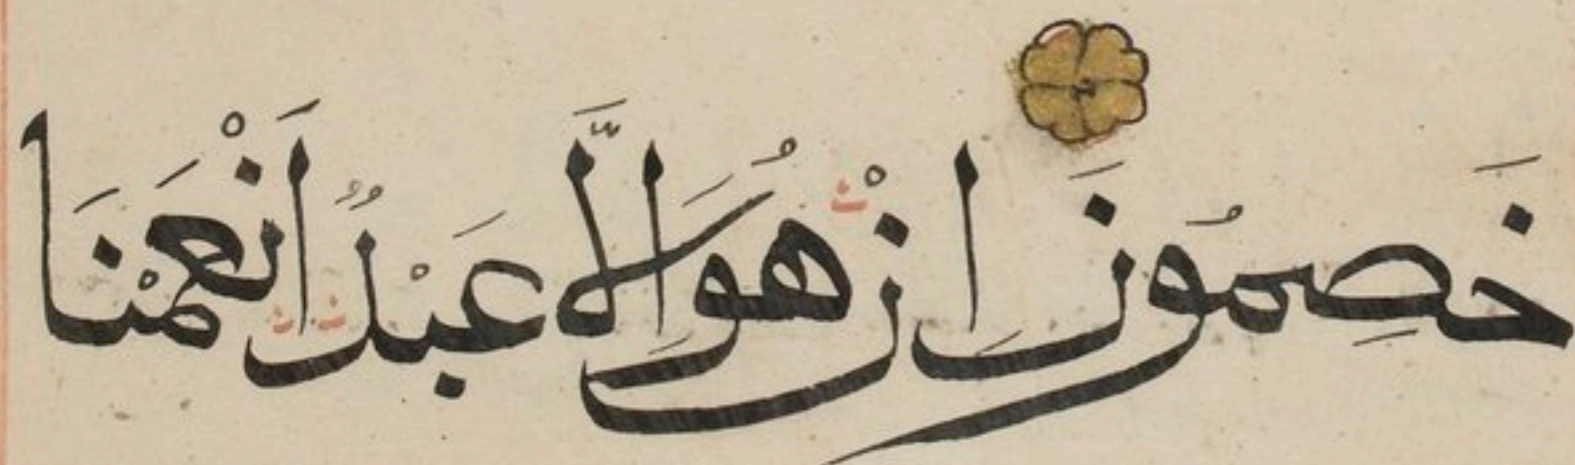 خَصِمُونَ اِنْ هُوَ اِلَّا عَبْدٌ اَنْعَمْنَا